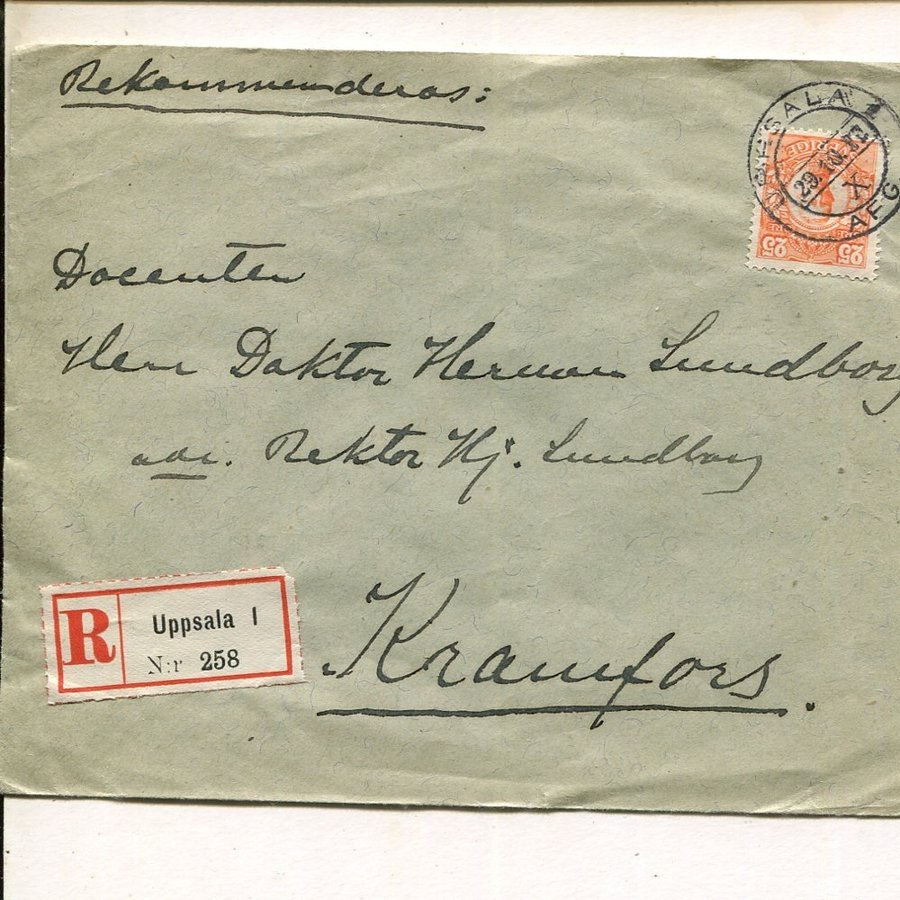 Rekommenderas:
UPSALA 1
29.10.12
X
AFG
SVERIGE
25 25
Docenten
Herr Doktor Herman Lundborg
adr. Rektor Hj. Lundborg
R Uppsala 1
N:r 258
Kramfors.